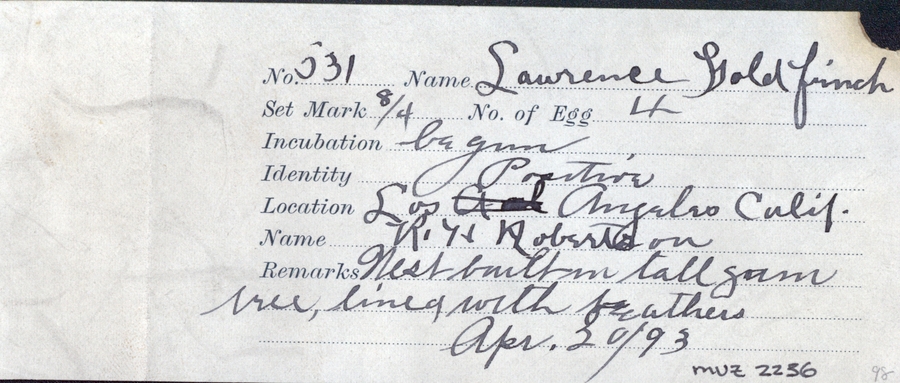 No. 531 Name Lawrence Goldfinch
Set Mark 8/4 No. of Egg 4
Incubation begun
Identity Positive
Location Los Angeles Calif.
Name R. H. Robertson
Remarks Nest built in tall gum
tree, lined with feathers
Apr. 20/93
MVZ 2256
98